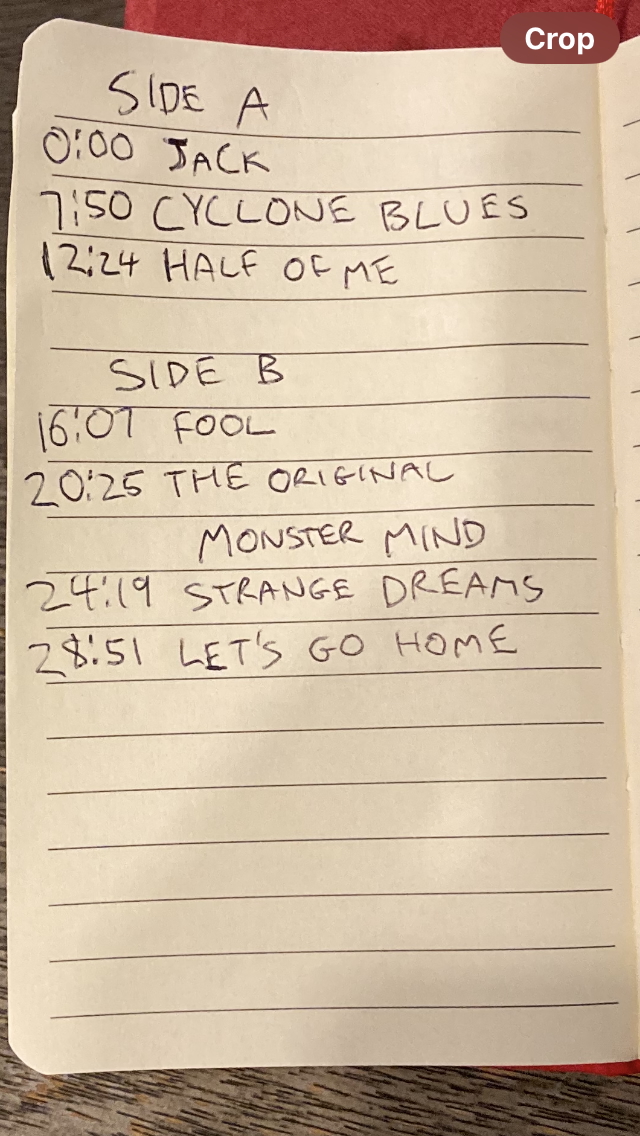 Crop
SIDE A
0:00 JACK
7:50 CYCLONE BLUES
12:24 HALF OF ME
SIDE B
16:07 FOOL
20:25 THE ORIGINAL
MONSTER MIND
24:19 STRANGE DREAMS
28:51 LET'S GO HOME